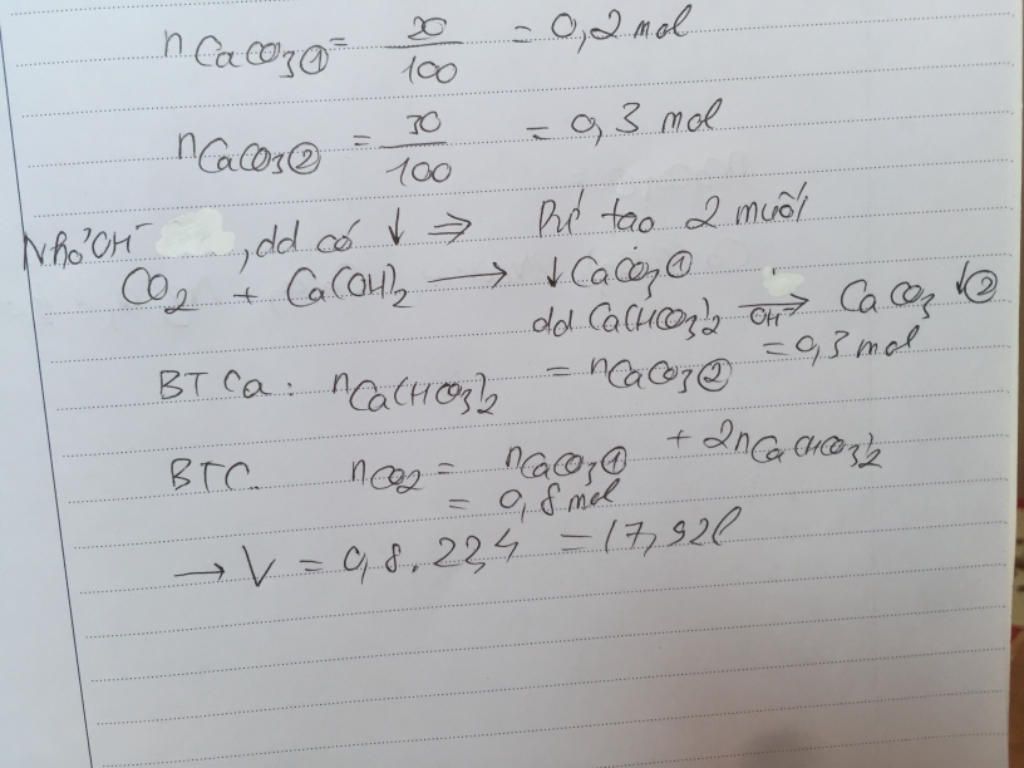 nCaCO3① = 20/100 = 0,2 mol
nCaCO3② = 30/100 = 0,3 mol
Nhỏ OH⁻, dd có ↓ ⇒ Pứ tạo 2 muối
CO2 + Ca(OH)2 → ↓ CaCO3①
dd Ca(HCO3)2 →OH⁻ CaCO3 ↓②
BT Ca: nCa(HCO3)2 = nCaCO3② = 0,3 mol
BTC. nCO2 = nCaCO3① + 2nCa(HCO3)2
= 0,8 mol
→ V = 0,8.22,4 = 17,92l